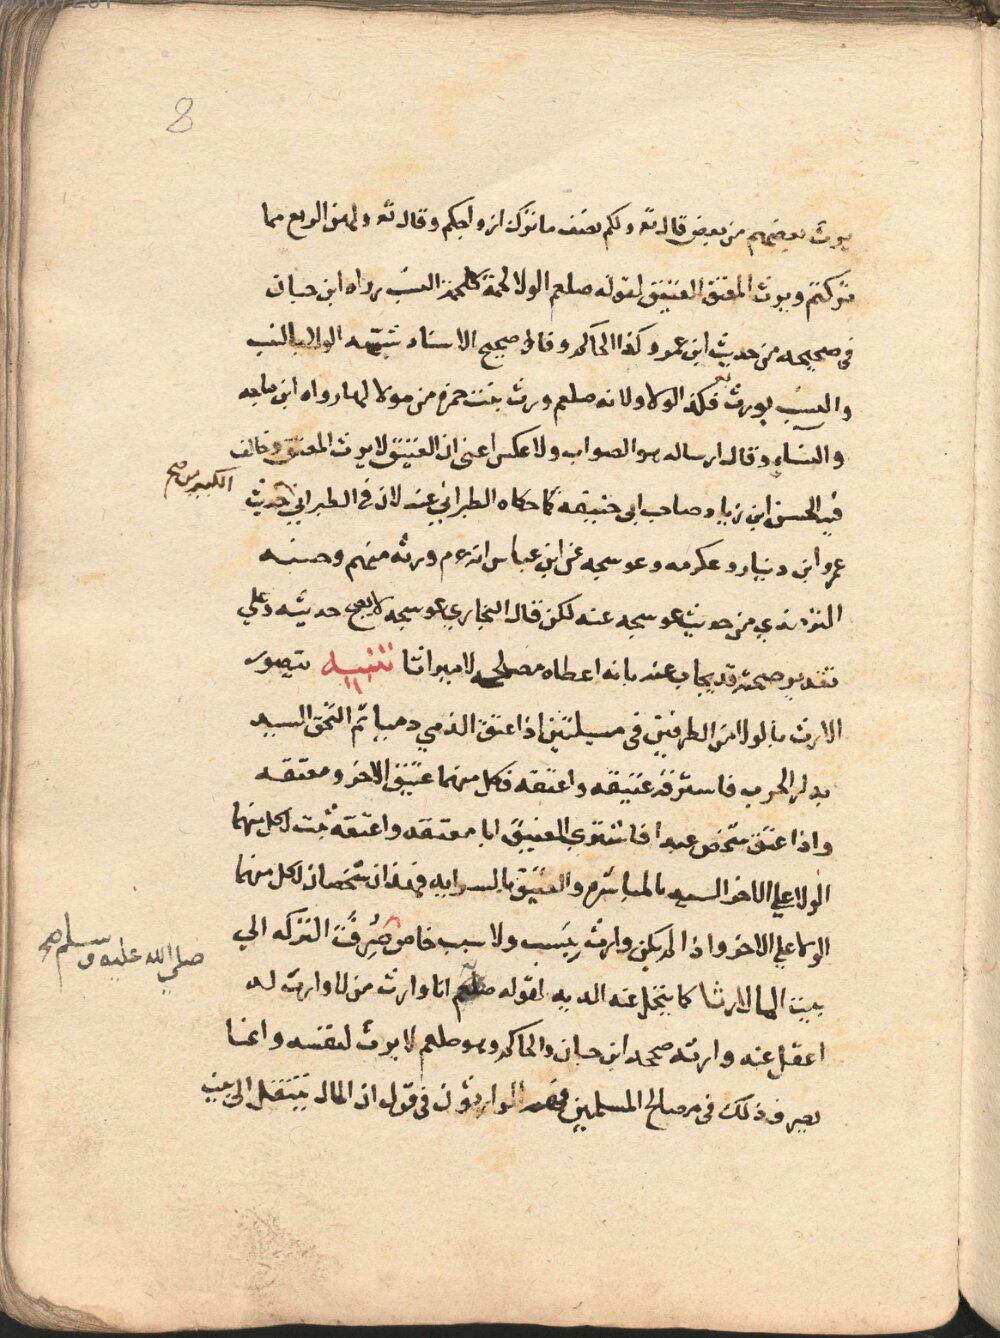 8
يورث بعضهم من بعض قال تع ولكم نصف ما ترك ازواجكم وقال تع ولهن الربع مما
تركتم ويرث المعتق العتيق لقوله صلعم الولا لحمة كلحمة النسب رواه ابن حبان
في صحيحه من حديث ابن عمر وكذا الحاكم وقال صحيح الاسناد شبه الولا بالنسب
والنسب يورث فكذا الولا ولانه صلعم ورث بنت حمزه من مولا لها رواه ابن ماجه
والنساي وقال ارساله هو الصواب ولا عكس اعني ان العتيق لا يرث المعتق وخالف
فيه الحسن ابن زياد صاحب ابي حنيفه كما حكاه الطبراني عنه لان في الطبراني حديث
الكبير من صح
عمرو ابن دينار وعكرمه وعوسجه عن ابن عباس انه عم ورثه منهم وحسنه
الترمذي من حديث عوسجه عنه لكن قال البخاري عوسجه لا يصح حديثه وعلي
تقدير صحته قد يجاب عنه بانه اعطاه مصلحه لا ميراثا تنبيه يتصور
الارث بالولا من الطرفين في مسيلتين اذا اعتق الذمي ذميا ثم التحق السيد
بدار الحرب فاسترقه عتيقه واعتقه فكل منهما عتيق الاخر ومعتقه
واذا عتق شخص عبدا فاشترى العتيق ابا معتقه واعتقه ثبت لكل منهما
الولا علي الاخر السيد بالمباشره والعتيق بالسرايه فهذان شخصان لكل منهما
الولا علي الاخر واذا لم يكن وارث بنسب ولا سبب خاص صرفت التركه الي
بيت المال ارثا كما يتحمل عنه الديه لقوله صلعم انا وارث من لا وارث له
صلي الله عليه وسلم صح
اعقل عنه وارثه صححه ابن حبان والحاكم وهو صلعم لا يرث لنفسه وانما
يصرف ذلك في مصالح المسلمين فهم الوارثون في قول ان المال ينتقل الي بيت